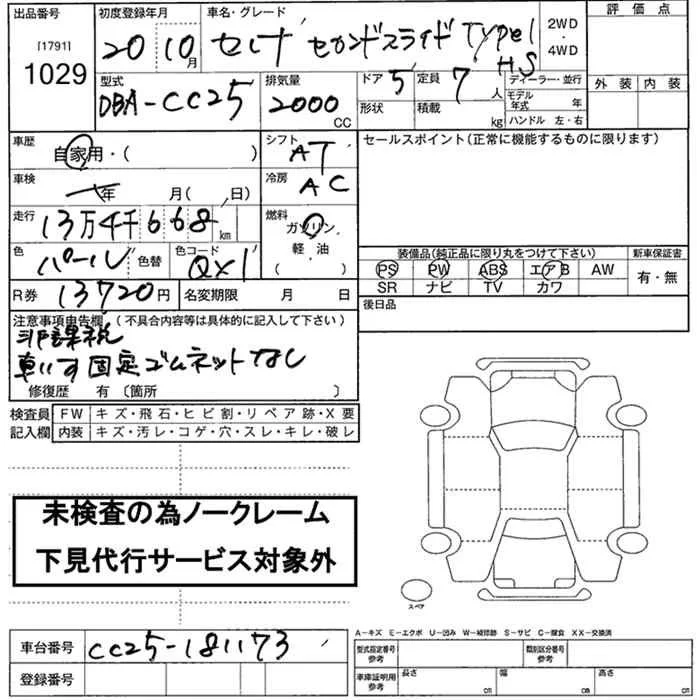 出品番号
[1791]
1029
初度登録年月
20 10月
車名・グレード
セレナ セカンドスライド TYPE1 HS
2WD
・
4WD
評価点
外装 内装
型式
DBA-CC25
排気量
2000
CC
ドア 5
定員 7人
形状
積載 kg
ディーラー・並行
モデル年式 年
ハンドル 左・右
車歴
自家用・( )
シフト
AT
車検
年 月( 、 日)
冷房
AC
走行
13万4千668km
燃料
ガソリン
軽・油
( )
色
パール
色替
色コード
QX1
R券 13720円
名変期限 月 日
セールスポイント(正常に機能するものに限ります)
装備品(純正品に限り丸をつけて下さい)
PS PW ABS エアB AW
SR ナビ TV カワ
新車保証書
有・無
後日品
注意事項申告欄 (不具合内容等は具体的に記入して下さい)
非課税
車いす固定ゴムネットなし
修復歴 有 〔箇所 〕
検査員記入欄
FW キズ・飛石・ヒビ割・リペア跡・X要
内装 キズ・汚レ・コゲ・穴・スレ・キレ・破レ
未検査の為ノークレーム
下見代行サービス対象外
スペア
車台番号 CC25-181173
登録番号
A−キズ E−エクボ U−凹み W−補修跡 S−サビ C−腐食 XX−交換済
型式指定番号
参考
類別区分番号
参考
車庫証明用
参考
長さ cm
幅 cm
高さ cm